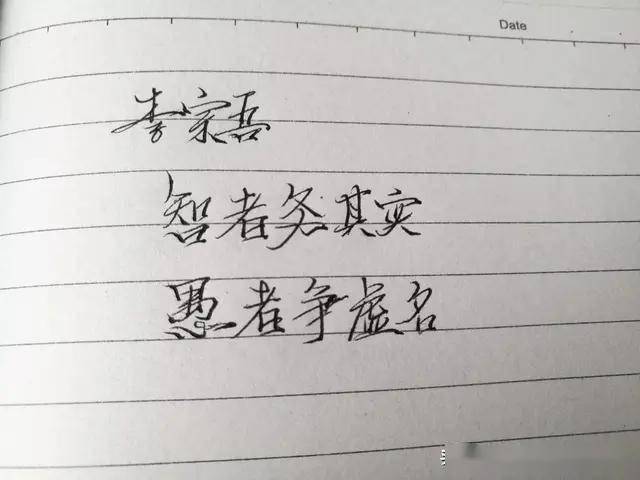 Date
李宗吾
智者务其实
愚者争虚名